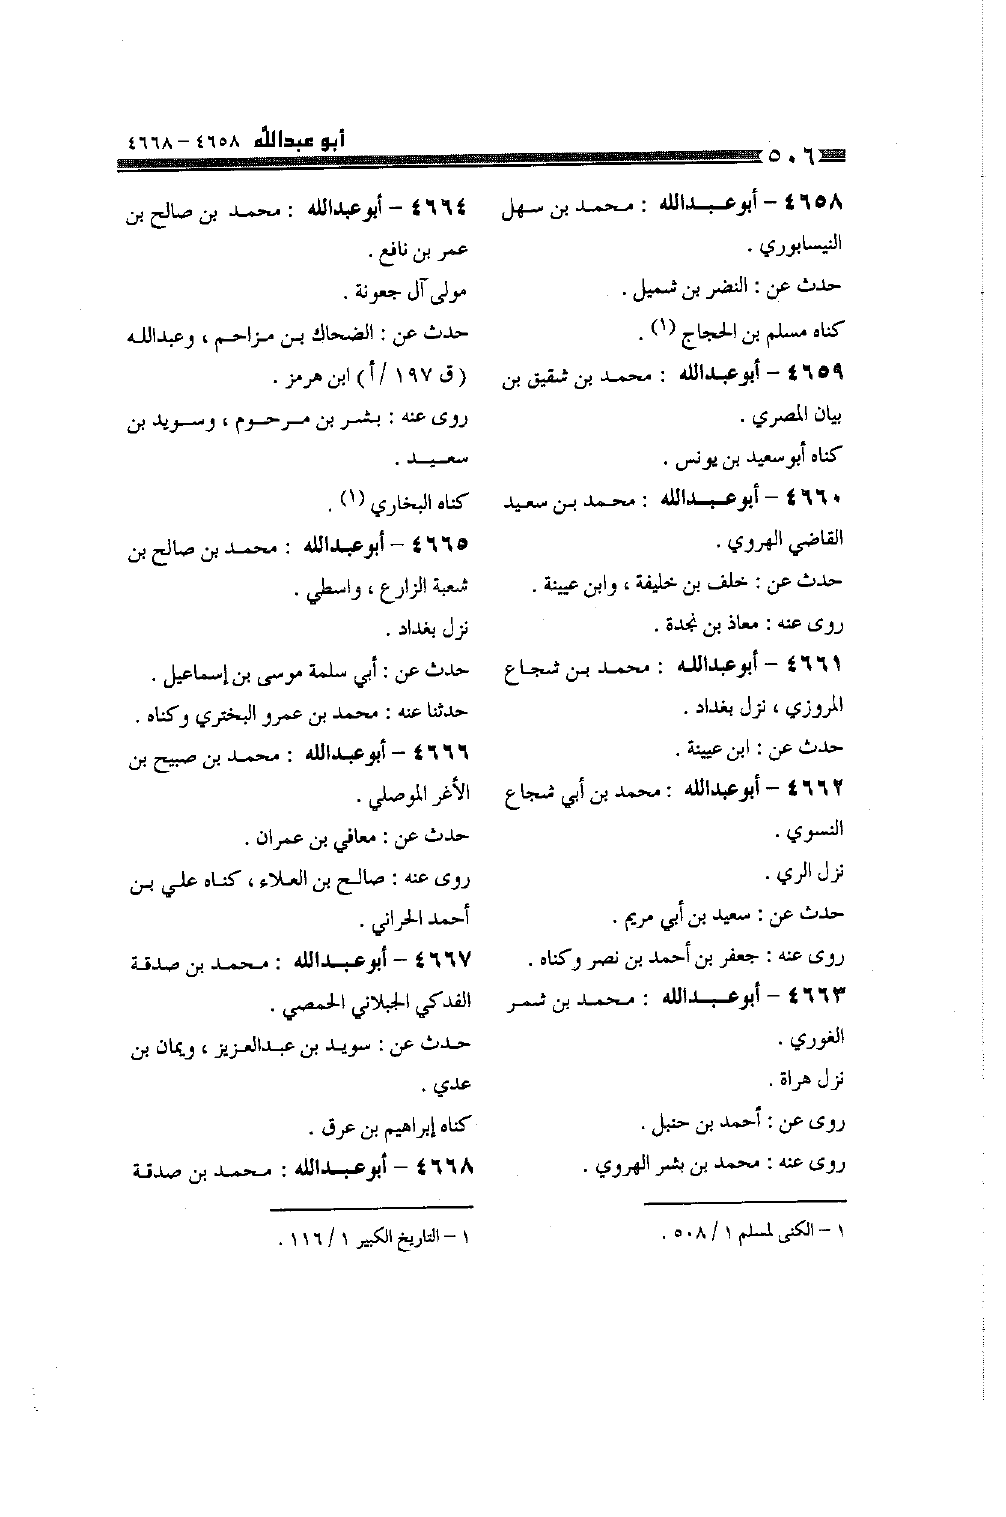 أبو عبدالله ٤٦٥٨ – ٤٦٦٨
٥٠٦
٤٦٥٨ – أبو عبدالله : محمد بن سهل
النيسابوري .
حدث عن : النضر بن شميل .
كناه مسلم بن الحجاج (١) .
٤٦٥٩ – أبو عبدالله : محمد بن شقيق بن
بيان المصري .
كناه أبو سعيد بن يونس .
٤٦٦٠ – أبو عبدالله : محمد بن سعيد
القاضي الهروي .
حدث عن : خلف بن خليفة ، وابن عيينة .
روى عنه : معاذ بن نجدة .
٤٦٦١ – أبو عبدالله : محمد بن شجاع
المروزي ، نزل بغداد .
حدث عن : ابن عيينة .
٤٦٦٢ – أبو عبدالله : محمد بن أبي شجاع
النسوي .
نزل الري .
حدث عن : سعيد بن أبي مريم .
روى عنه : جعفر بن أحمد بن نصر وكناه .
٤٦٦٣ – أبو عبدالله : محمد بن شمر
الغوري .
نزل هراة .
روى عن : أحمد بن حنبل .
روى عنه : محمد بن بشر الهروي .
١ – الكنى لمسلم ١ / ٥٠٨ .
٤٦٦٤ – أبو عبدالله : محمد بن صالح بن
عمر بن نافع .
مولى آل جعونة .
حدث عن : الضحاك بن مزاحم ، وعبدالله
(ق ١٩٧ /أ) ابن هرمز .
روى عنه : بشر بن مرحوم ، وسويد بن
سعيد .
كناه البخاري (١) .
٤٦٦٥ – أبو عبدالله : محمد بن صالح بن
شعبة الزارع ، واسطي .
نزل بغداد .
حدث عن : أبي سلمة موسى بن إسماعيل .
حدثنا عنه : محمد بن عمرو البختري وكناه .
٤٦٦٦ – أبو عبدالله : محمد بن صبيح بن
الأغر الموصلي .
حدث عن : معافي بن عمران .
روى عنه : صالح بن العلاء ، كناه علي بن
أحمد الحراني .
٤٦٦٧ – أبو عبدالله : محمد بن صدقة
الفدكي الجبلاني الحمصي .
حدث عن : سويد بن عبدالعزيز ، ويمان بن
عدي .
كناه إبراهيم بن عرق .
٤٦٦٨ – أبو عبدالله : محمد بن صدقة
١ – التاريخ الكبير ١ / ١١٦ .